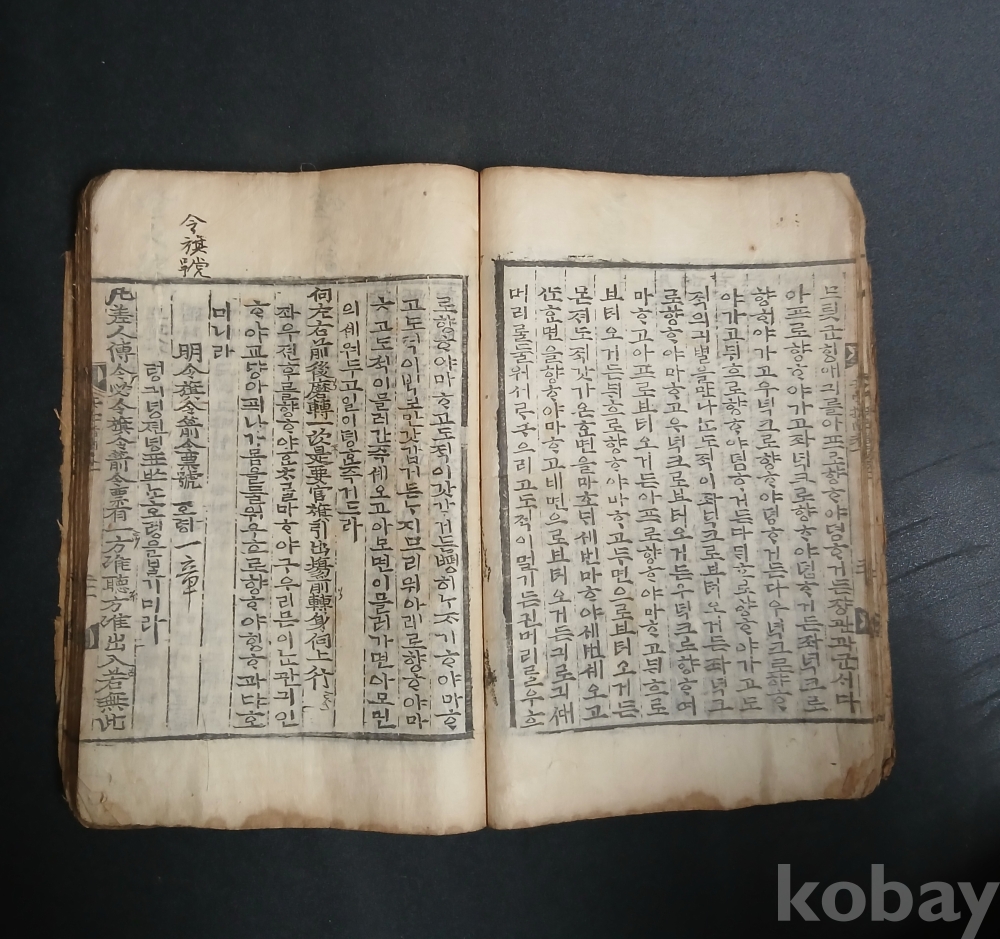 므릣군힝애긔를아프로향ᄒᆞ야뎜ᄒᆞ거든쟝관과군ᄉᆡ다
아프로향ᄒᆞ야가고좌녁크로향ᄒᆞ야뎜ᄒᆞ거든좌녁크로
향ᄒᆞ야가고우녁크로향ᄒᆞ야뎜ᄒᆞ거든다우녁크로향ᄒᆞ
야가고뒤흐로향ᄒᆞ야뎜ᄒᆞ거든다뒤흐로향ᄒᆞ야가고도
적의긔별을만나도적이좌녁크로브터오거든좌녁크
로향ᄒᆞ야마ᄒᆞ고우녁크로브터오거든우녁크로향ᄒᆞ여
마ᄒᆞ고아프로브터오거든아프로향ᄒᆞ야마ᄒᆞ고뒤흐로
브터오거든뒤흐로향ᄒᆞ야마ᄒᆞ고두면으로브터오거든
몬져도적갓가온ᄒᆞᆫ면을마ᄒᆞ되세번마ᄒᆞ야세번셰오고
ᄒᆞᆫ면을향ᄒᆞ야마ᄒᆞ고네면으로브터오거든긔로긔대
머리ᄅᆞᆯ둘워셔르구으리고도적이멀기든긴머리ᄅᆞᆯ우흐
로향ᄒᆞ야마ᄒᆞ고도적이갓갑거든ᄲᆞᆯ히누지기ᄒᆞ야마ᄒᆞ
고도적이갓갑거든누지므리워아래로향ᄒᆞ야마
ᄒᆞ고도적이믈러간즉셰오고아모면이믈러가면아모면
의셰워두고일이뎡ᄒᆞᆫ즉거드라
向左右前後磨轉一次是要官旗引出場前轉身向上行
좌우젼후를향ᄒᆞ야ᄒᆞᆫ슌마ᄒᆞ야구우리믄이ᄂᆞᆫ관긔인
ᄒᆞ야교당아픠나가몸을둘워우흐로향ᄒᆞ야힝ᄒᆞ과댜ᄒᆞ
미니라
明令旗令箭令票號 모다 一章
령긔령젼녕표쓰ᄂᆞᆫ호령을ᄇᆞᆯ기미라
凡差人傳令必令旗令箭令票有一方准聽方准出入若無此
令旗號
kobay